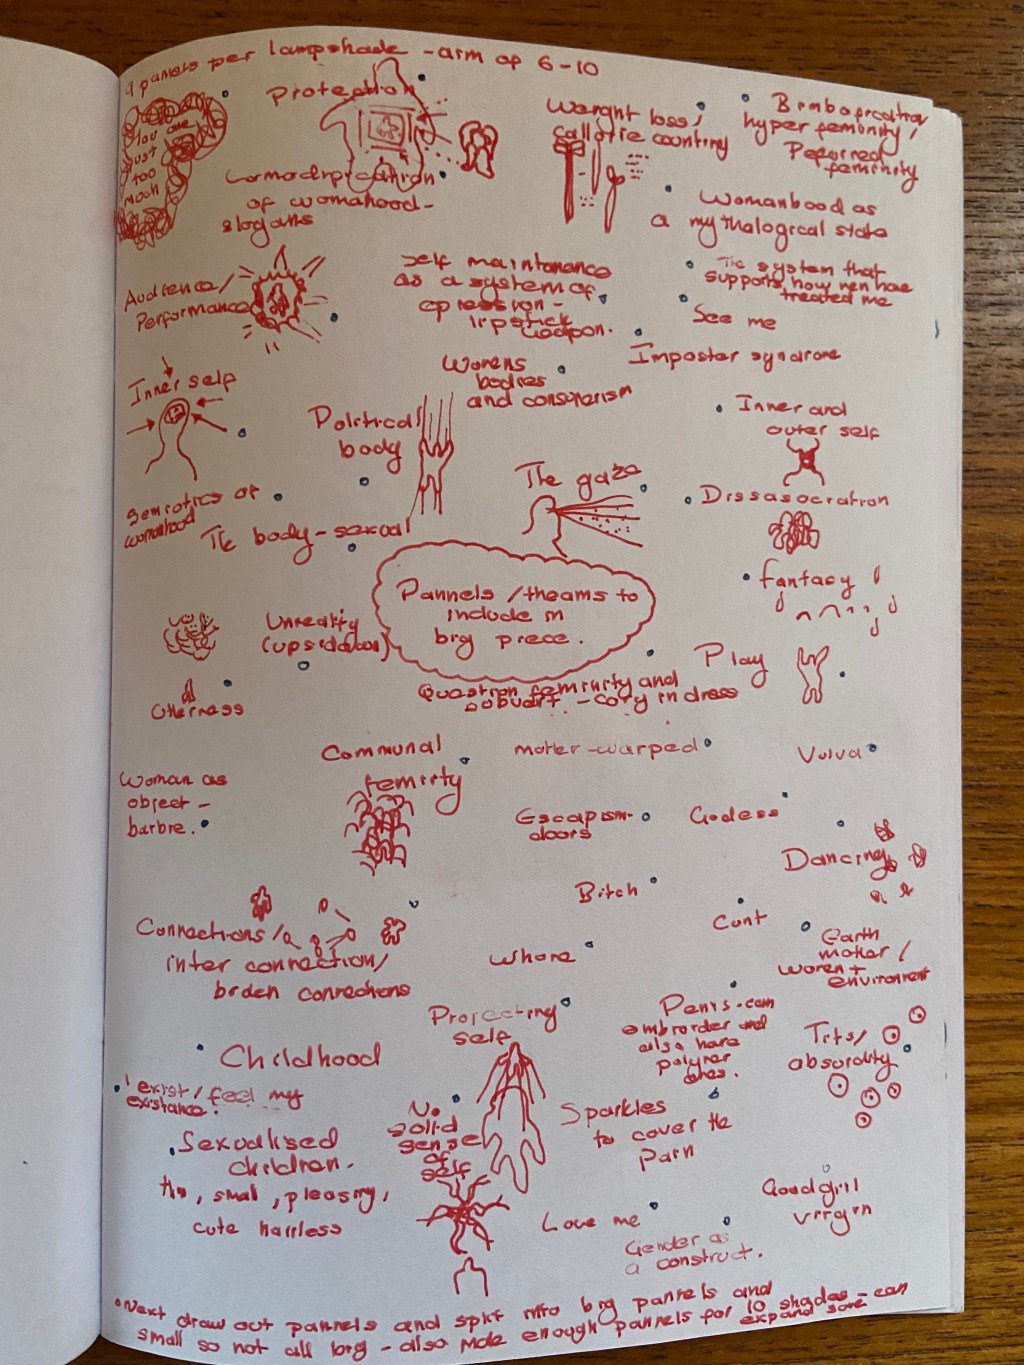 9 panels per lampshade - aim of 6-10
You are
just
too
much
Protection
Commodification
of womahood -
slogans
Weight loss/
callorie counting
Bimbofication/
hyper feminity/
Peformed
feminity
Womanhood as
a mythalogical state
Audience/
Performance
Self maintanance
as a system of
opression -
lipstick
weapon.
The system that
supports how men have
treated me
See me
Imposter syndrone
Inner self
Womens
bodies
and consumerism
Political
body
Inner and
outer self
The gaze
Semiotics of
womanhood
The body - sexual
Dissasociation
Pannels / theams to
include in
big piece.
Fantacy
Unreality
(upsidedown)
Play
Otherness
Question feminity and
- Cory in dress
Communal
feminty
mother - warped
Vulva
Woman as
object -
barbie.
Escapism -
doors
Godess
Dancing
Bitch
Connections/
inter connection/
broken connections
Cunt
Whore
Earth
mother /
women +
environment
Projecting
self
Penis - can
embroider and
also have
polymer
ones.
Tits/
absurdity
Childhood
I exist / feel my
existance.
No
solid
sense
of
self
Sparkles
to cover the
pain
Sexualised
children.
thin, small, pleasing,
cute hairless
Love me
Good girl
virgin
Gender as
a construct.
Next draw out pannels and split into big pannels and
small so not all big - also make enough pannels for 10 shades - can
expand some